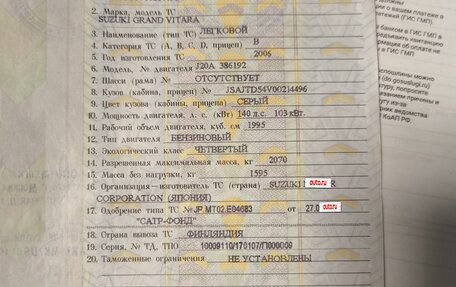 2. Марка, модель ТС
SUZUKI GRAND VITARA
3. Наименование (тип ТС) ЛЕГКОВОЙ
4. Категория ТС (A, B, C, D, прицеп) B
5. Год изготовления ТС 2006
6. Модель, № двигателя J20A 386192
7. Шасси (рама) № ОТСУТСТВУЕТ
8. Кузов (кабина, прицеп) № JSAJTD54V00214496
9. Цвет кузова (кабины, прицепа) СЕРЫЙ
10. Мощность двигателя, л. с. (кВт) 140 л.с. 103 кВт.
11. Рабочий объем двигателя, куб. см 1995
12. Тип двигателя БЕНЗИНОВЫЙ
13. Экологический класс ЧЕТВЕРТЫЙ
14. Разрешенная максимальная масса, кг 2070
15. Масса без нагрузки, кг 1595
16. Организация—изготовитель ТС (страна) SUZUKI auto.ru R
CORPORATION (ЯПОНИЯ)
17. Одобрение типа ТС № JP.MT02.E04683 от 27.0 auto.ru
"САТР-ФОНД"
18. Страна вывоза ТС ФИНЛЯНДИЯ
19. Серия, № ТД, ТПО 10009110/170107/П000009
20. Таможенные ограничения НЕ УСТАНОВЛЕНЫ
о вашем платеже о
банком в ГИС ГМП в
предъявить квитанцию
рмация об оплате не
(ГИС ГМП)
можно
(do.gosuslugi.ru)
попросите
причины и
из-за
ведомства
КоАП РФ.